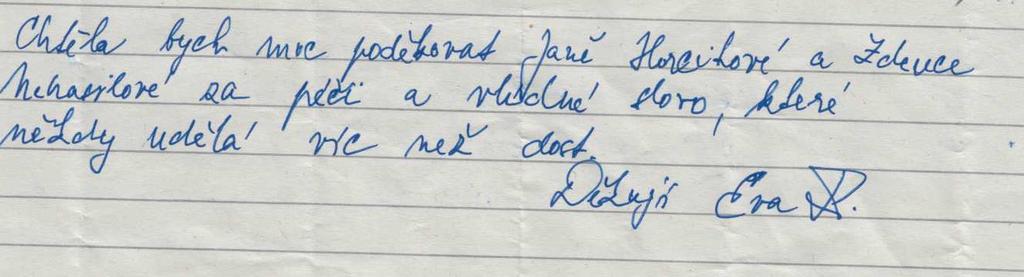 Chtěla bych moc poděkovat Janě Horčikové a Zdence
Nehasilové za péči a vhodné slovo, které
někdy udělá víc než dost.
Děkuji Eva R.